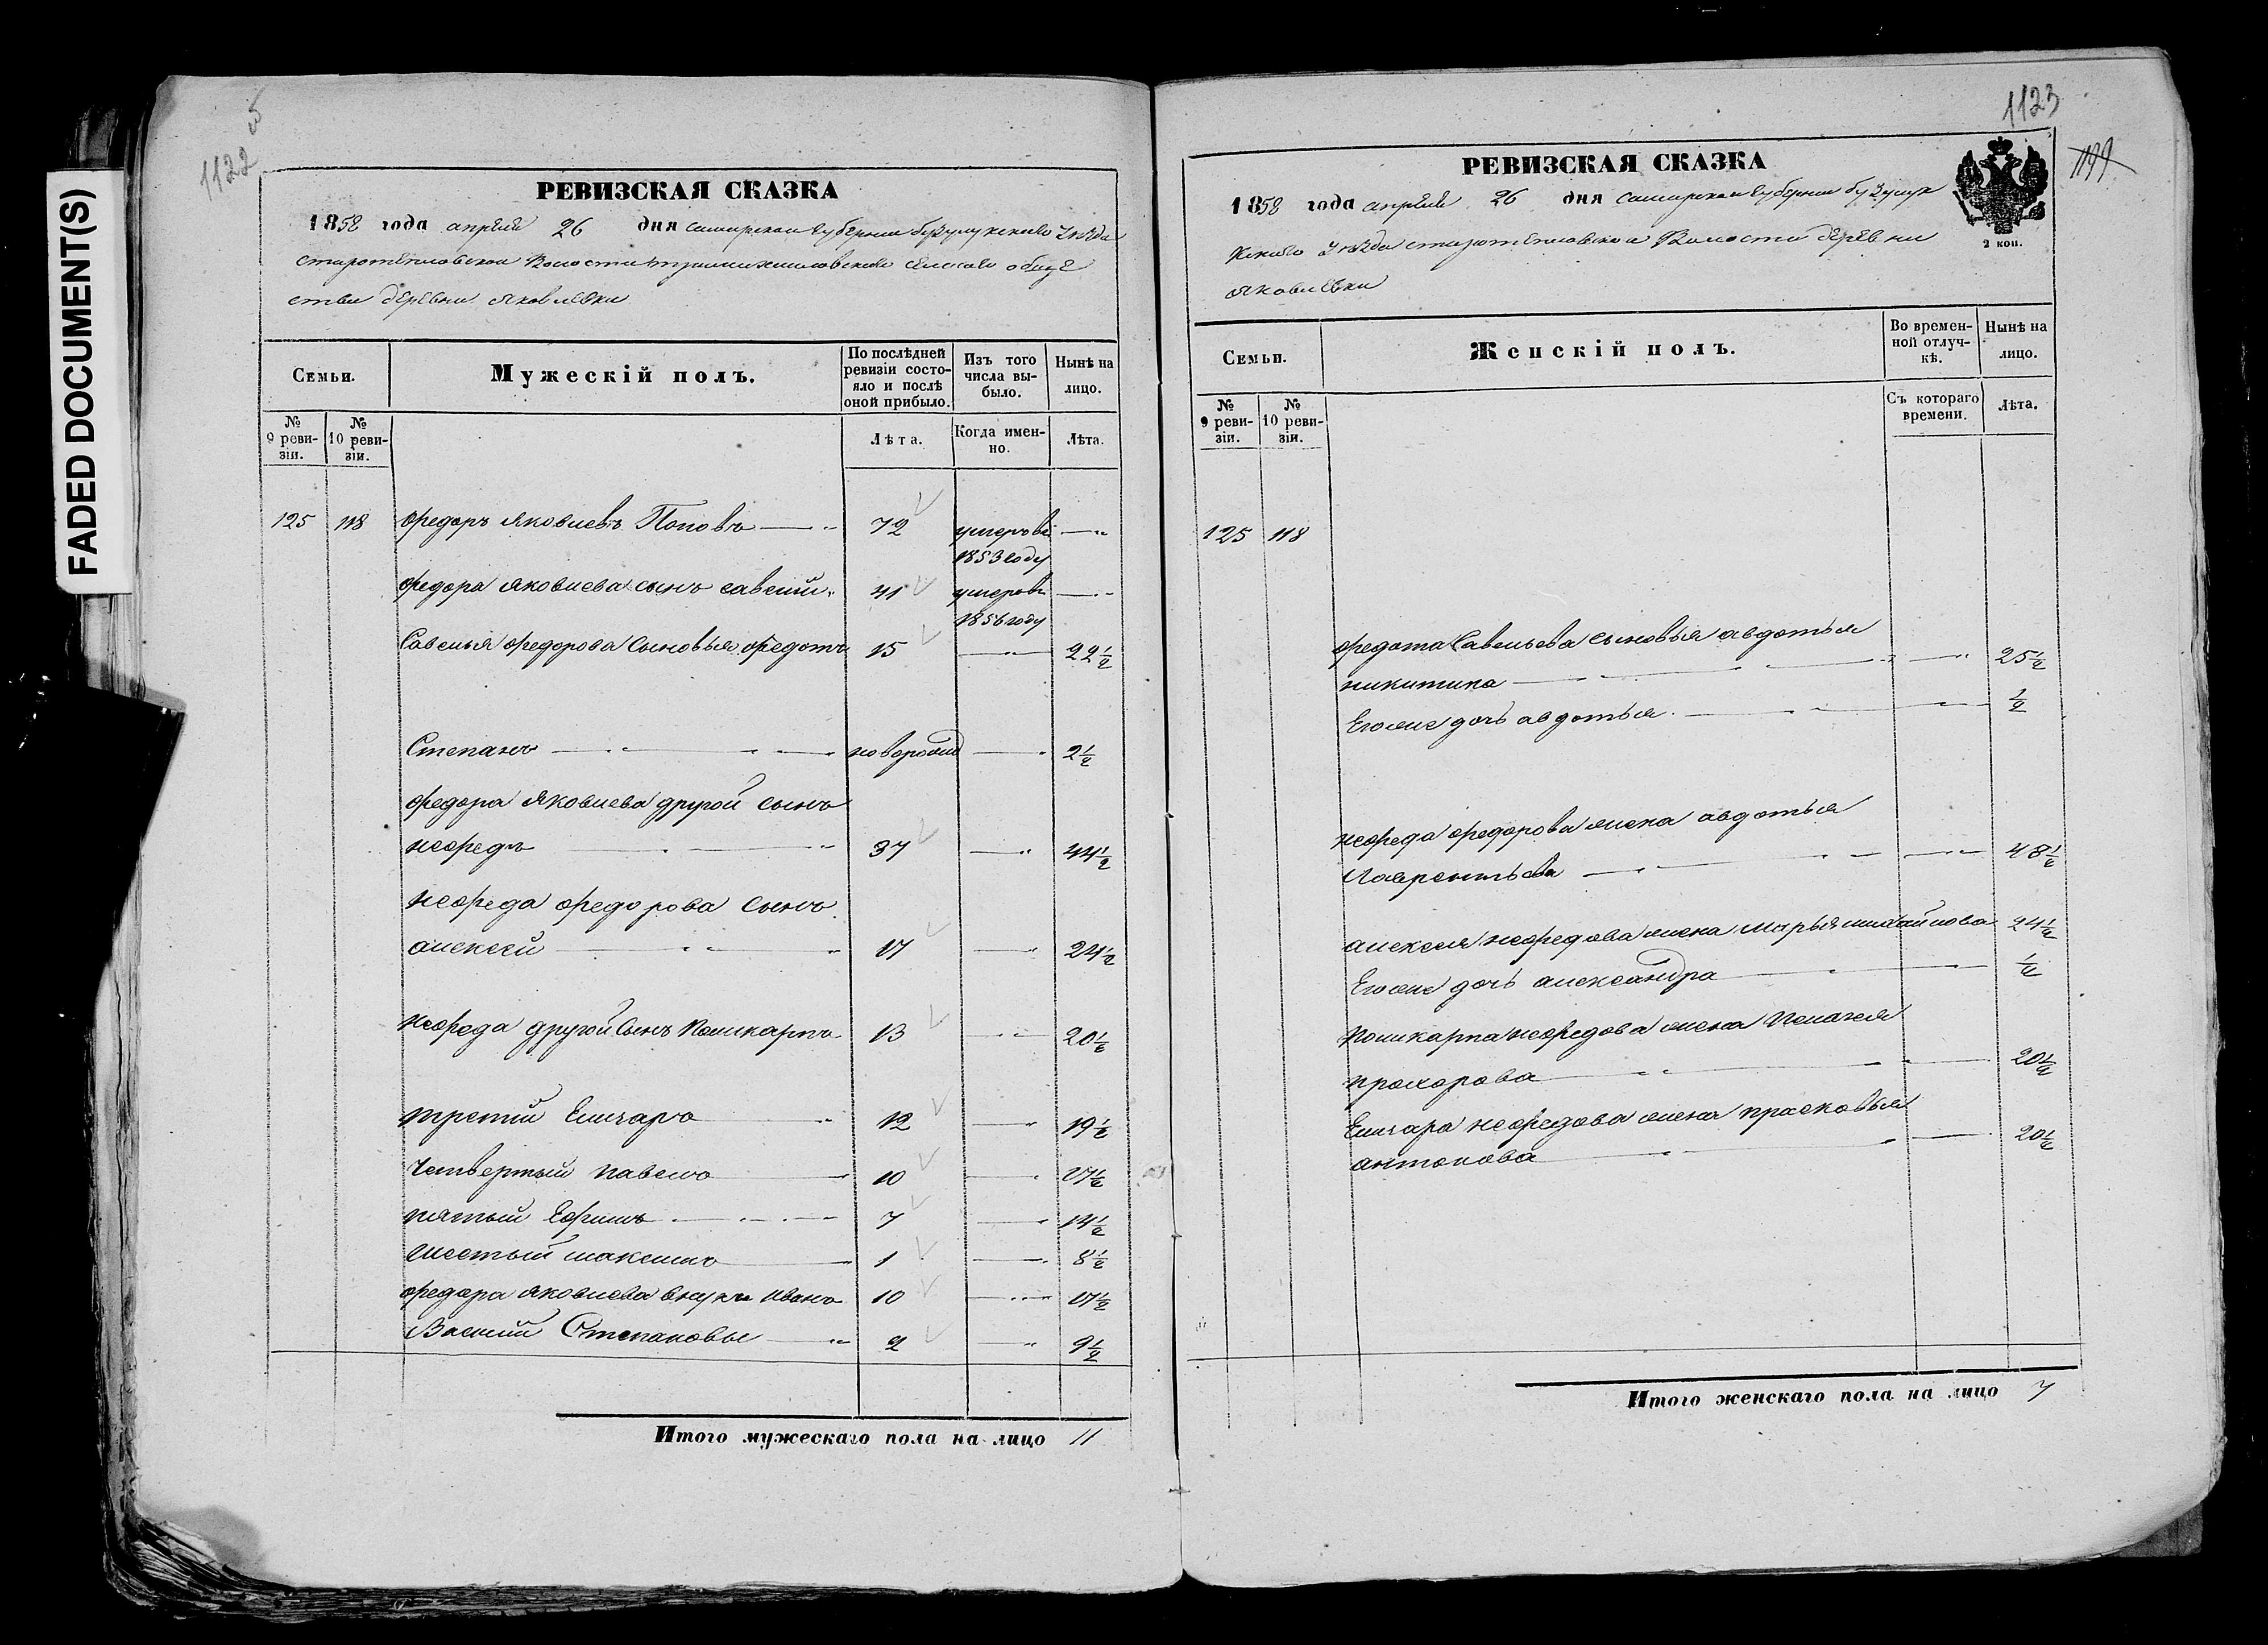 FADED DOCUMENT(S)
5
1122
РЕВИЗСКАЯ СКАЗКА
1858 года апреля 26 дня самарской губернии бузулукскаго уѣзда
старотепловской волости сельскаго обще
ства деревни яковлевки
Семьи.
Мужескій полъ.
По послѣдней ревизіи состояло и послѣ оной прибыло.
Изъ того числа выбыло.
Нынѣ на лицо.
№ 9 ревизіи.
№ 10 ревизіи.
Лѣта.
Когда именно.
Лѣта.
125 118 Федоръ яковлевъ Поповъ 72 умеръ въ
1853 году
федора яковлева сынъ савелий 41 умеръ въ
1856 году
Савелья федорова Сыновья федотъ 15 22 1/2
Степанъ новорожд 2 1/2
федора яковлева другой сынъ
нефедъ 37 44 1/2
нефеда федорова Сынъ
алексей 17 24 1/2
нефеда другой Сынъ Поликарпъ 13 20 1/2
третий Елизаръ 12 19 1/2
Четвертый павелъ 10 17 1/2
пятый Ефимъ 7 14 1/2
шестый максимъ 1 8 1/2
федора яковлева внуки иванъ 10 17 1/2
Василий Степановы 2 9 1/2
Итого мужескаго пола на лицо 11
1123
РЕВИЗСКАЯ СКАЗКА
1858 года апреля 26 дня самарской губернии бузулук
скаго уѣзда старотепловской Волости деревни
яковлевки
2 коп.
Семьи.
Женскій полъ.
Во временной отлучкѣ.
Нынѣ на лицо.
№ 9 ревизіи.
№ 10 ревизіи.
Съ котораго времени.
Лѣта.
125 118
федота Савельева сыновья авдотья
никитина 25 1/2
Егоже дочь авдотья 1/2
нефеда федорова жена авдотья
Лаврентьева 48 1/2
алексея нефедова жена марья михайлова 24 1/2
Егоже дочь александра 1/2
Поликарпа нефедова жена Пелагея
прохорова 20 1/2
Елизара нефедова жена прасковья
антонова 20 1/2
Итого женскаго пола на лицо 7